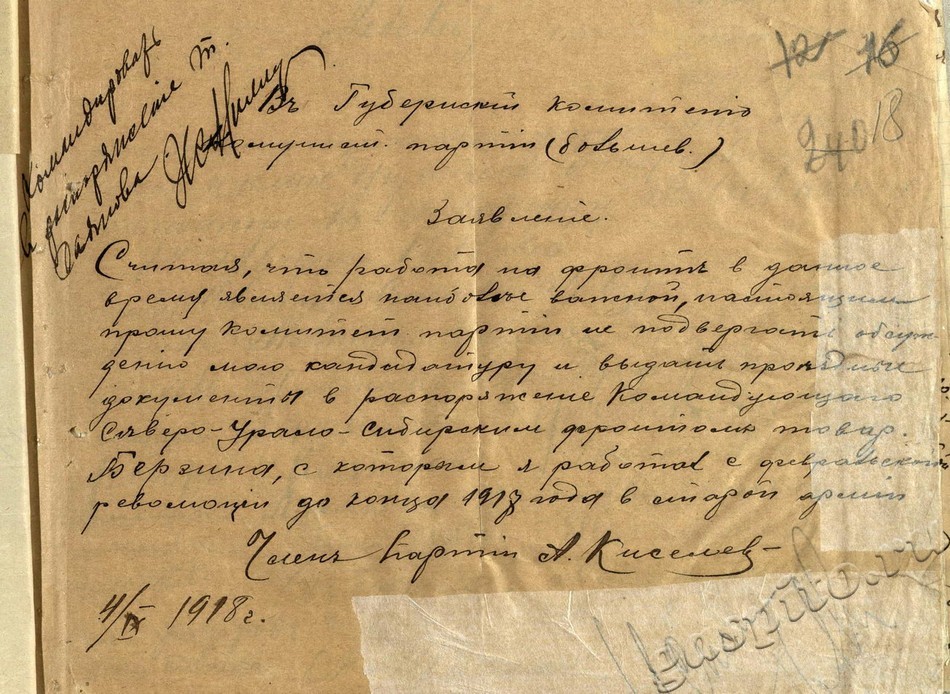 12 16
240 18
Командировать
в распоряжение т.
Въ Губернский комитетъ
Коммунист. партiи (большев.)
Заявленiе.
Считая, что работа на фронтѣ в данное
время является наиболѣе важной, настоящим
прошу комитет партiи не подвергать обсуж-
денiю мою кандидатуру и выдать проѣздные
документы в распоряженiе Командующаго
Сѣверо-Урало-Сибирским фронтомъ товар.
Берзина, с которым я работал с февральской
революцiи до конца 1917 года в старой армiи
Членъ партiи А. Киселев
4/IX 1918г.